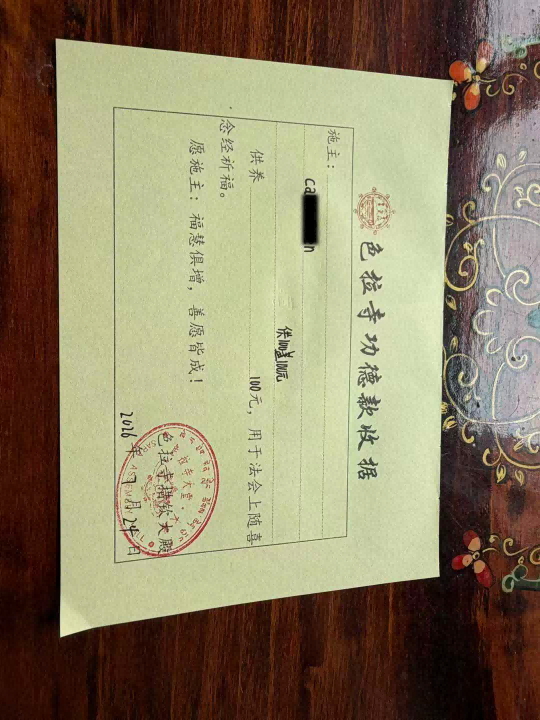 色拉寺功德款收据
施主：
ca n
供100盏100元
供养 100元，用于法会上随喜
念经祈福。
愿施主：福慧俱增，善愿皆成！
色拉寺措钦大殿
2026年7月24日